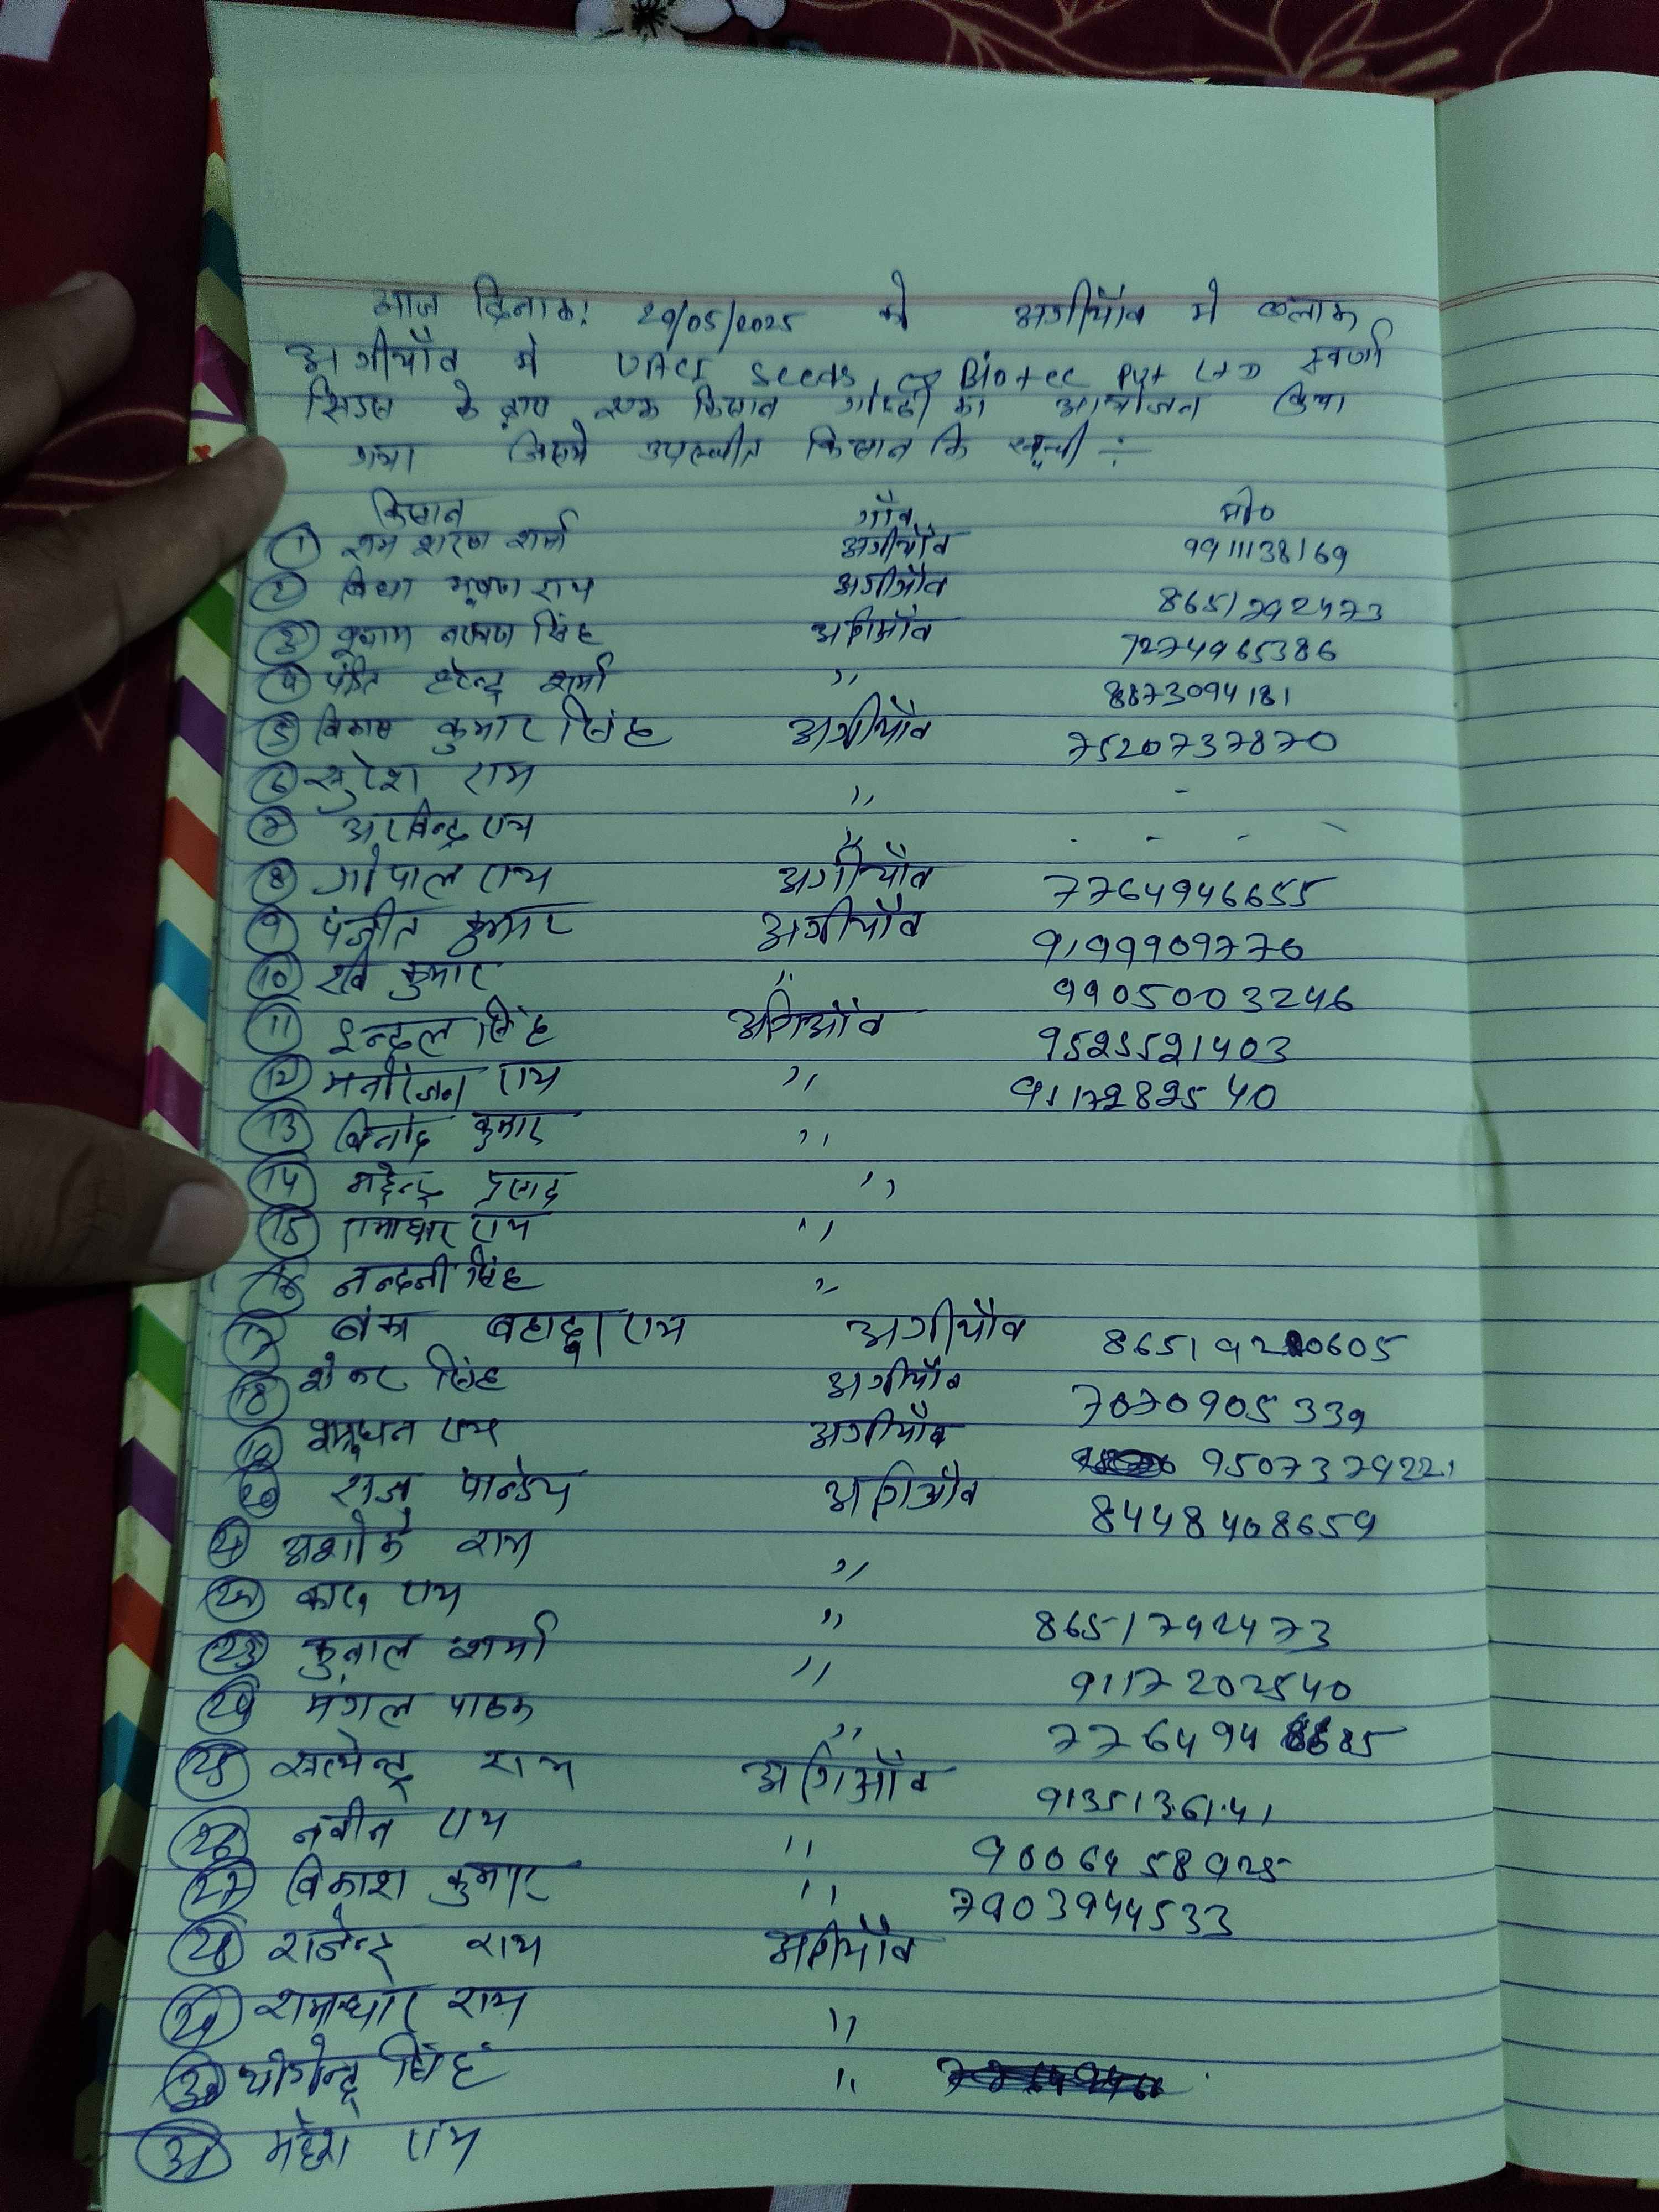 आज दिनाक! 29/05/2025 को अगीयाँव मे ब्लाक
अगीयाँव मे Seeds Biotec Pvt LTD स्वर्णा
सिडस के द्वारा एक किसान गोष्ठी का आयोजन किया
गया जिसमे उपस्थीत किसान कि सूची ÷
किसान गाँव मो०
① राम शरण शर्मा अगीयाँव 9911138169
② विद्या भूषण राय अगीयाँव 8651792473
③ नारायण सिंह अगिआँव 7274965386
④ हरेन्द्र शर्मा ,, 8873094181
⑤ विकास कुमार सिंह अगीयाँव 7520737870
⑥ सुरेश राम ,, -
⑦ अरविन्द्र राय ,, - - - -
⑧ गोपाल राय अगीयाँव 7764946655
⑨ पंजीत कुमार अगीयाँव 9199909770
⑩ रवि कुमार ,, 9905003246
⑪ इन्दल सिंह अगिआँव 9525521403
⑫ मनोरंजन राय ,, 9117282540
⑬ विनोद कुमार ,,
⑭ महेन्द्र प्रसाद ,,
⑮ रामाधार राय ,,
⑯ नन्दनी सिंह ,,
⑰ बहादुर राम अगीयाँव
⑱ शंकर सिंह अगीयाँव 7070905339
⑲ शत्रुघन राय अगीयाँव 9507379221
⑳ राजु पान्डेय अगिआँव 8448408659
㉑ अशोक राम ,,
㉒ राय ,, 8651792473
㉓ कुनाल शर्मा ,, 9117202540
㉔ मंगल पाठक ,,
㉕ सत्येन्द्र राम अगिआँव 9135136141
㉖ नवीन राय ,, 9006458925
㉗ विकाश कुमार ,, 7903944533
㉘ राजेन्द्र राय अगीयाँव
㉙ रामाधार राम ,,
㉚ योगेन्द्र सिंह ,,
㉛ महेश राम